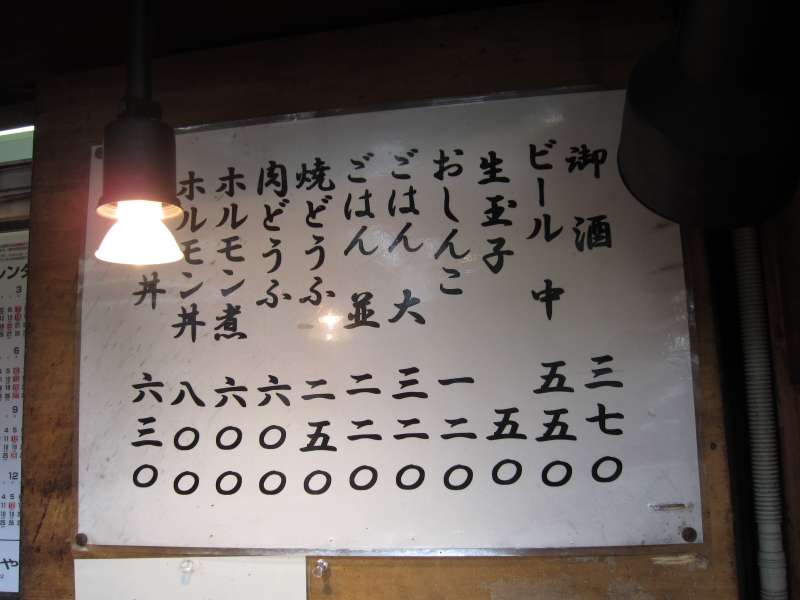 御酒 三七〇
ビール 中 五五〇
生玉子 五〇
おしんこ 一二〇
ごはん 大 三二〇
ごはん 並 二二〇
焼どうふ 二五〇
肉どうふ 六〇〇
ホルモン煮 六〇〇
ホルモン丼 八〇〇
丼 六三〇
レンダ
3
6
9
12
や